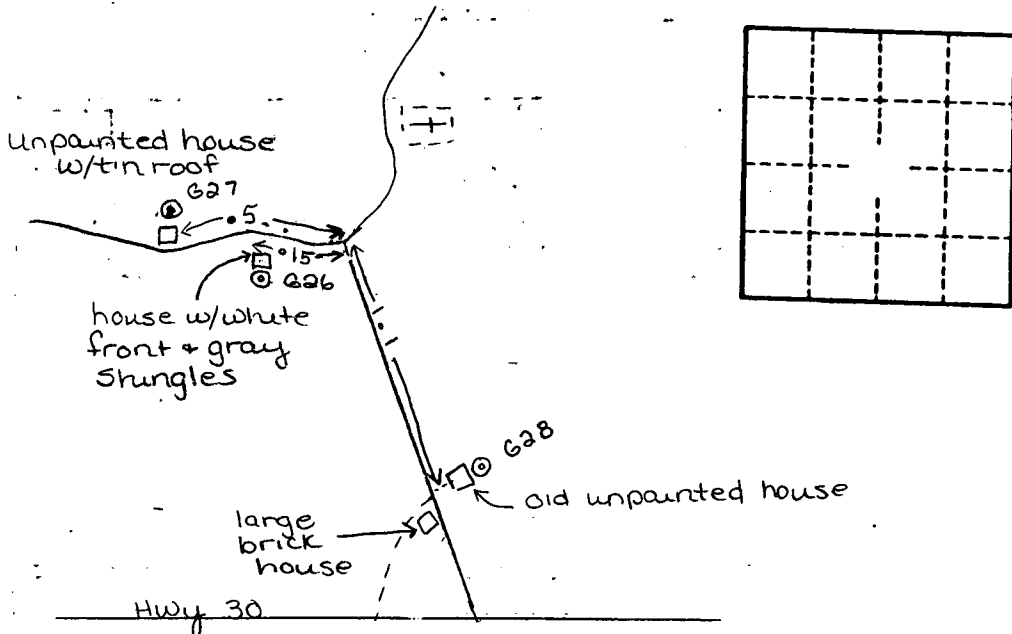 unpainted house
w/tin roof
G27
.5
.15
G26
house w/white
front + gray
shingles
1.1
G28
old unpainted house
large
brick
house
Hwy 30